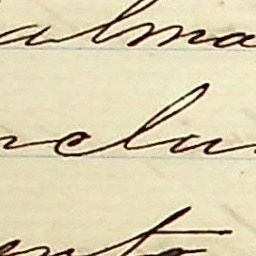 alma
nclu
ento